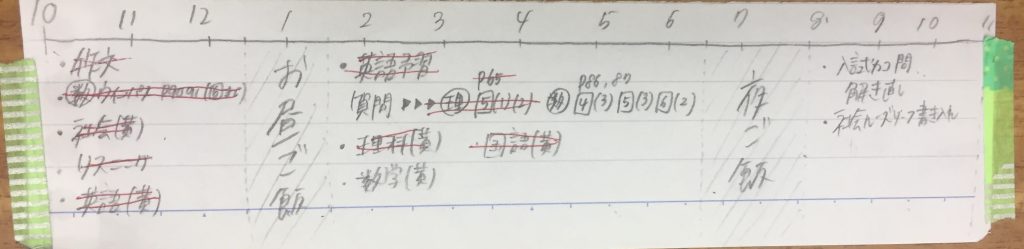 10 11 12 1 2 3 4 5 6 7 8 9 10 11
・作文
・数
・社会(黄)
・英語(黄)
お昼ご飯
・英語予習
P65
質問 ▶▶▶ 理 5(1)(2) 数 4(3) 5(3) 6(2)
P86,87
・理科(黄) ・国語(黄)
・数学(黄)
夜ご飯
・入試カコ問
解き直し
・社会ルーズリーフ書き込み